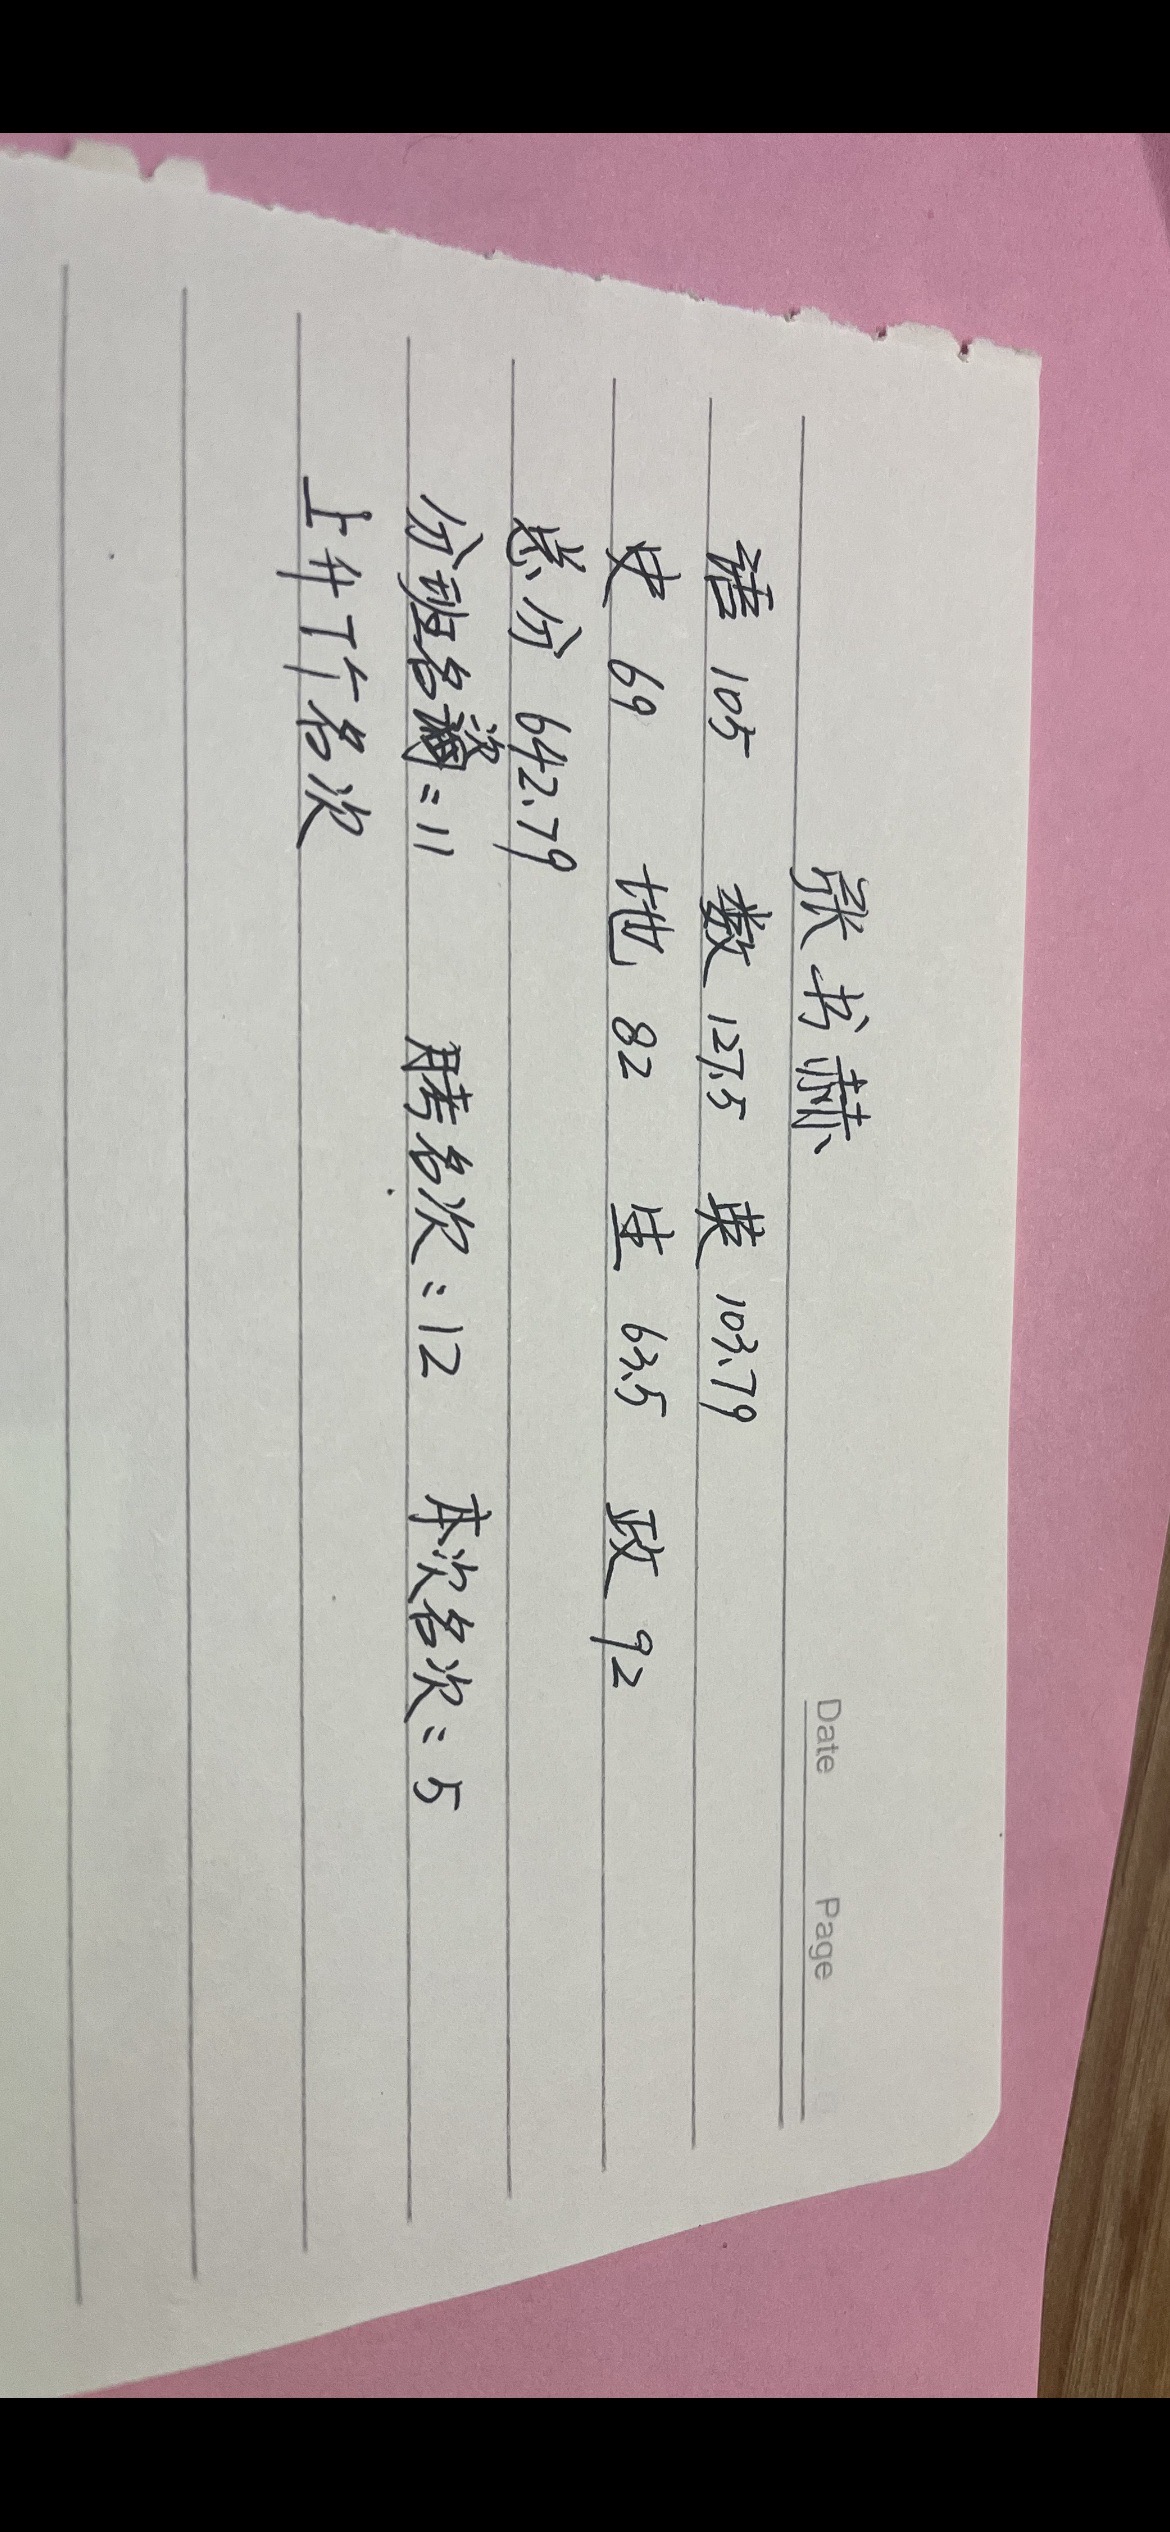 Date Page
张书赫
语 105 数 127.5 英 103.79
史 69 地 82 生 63.5 政 92
总分 642.79
分班名次:11 月考名次:12 本次名次:5
上升7个名次